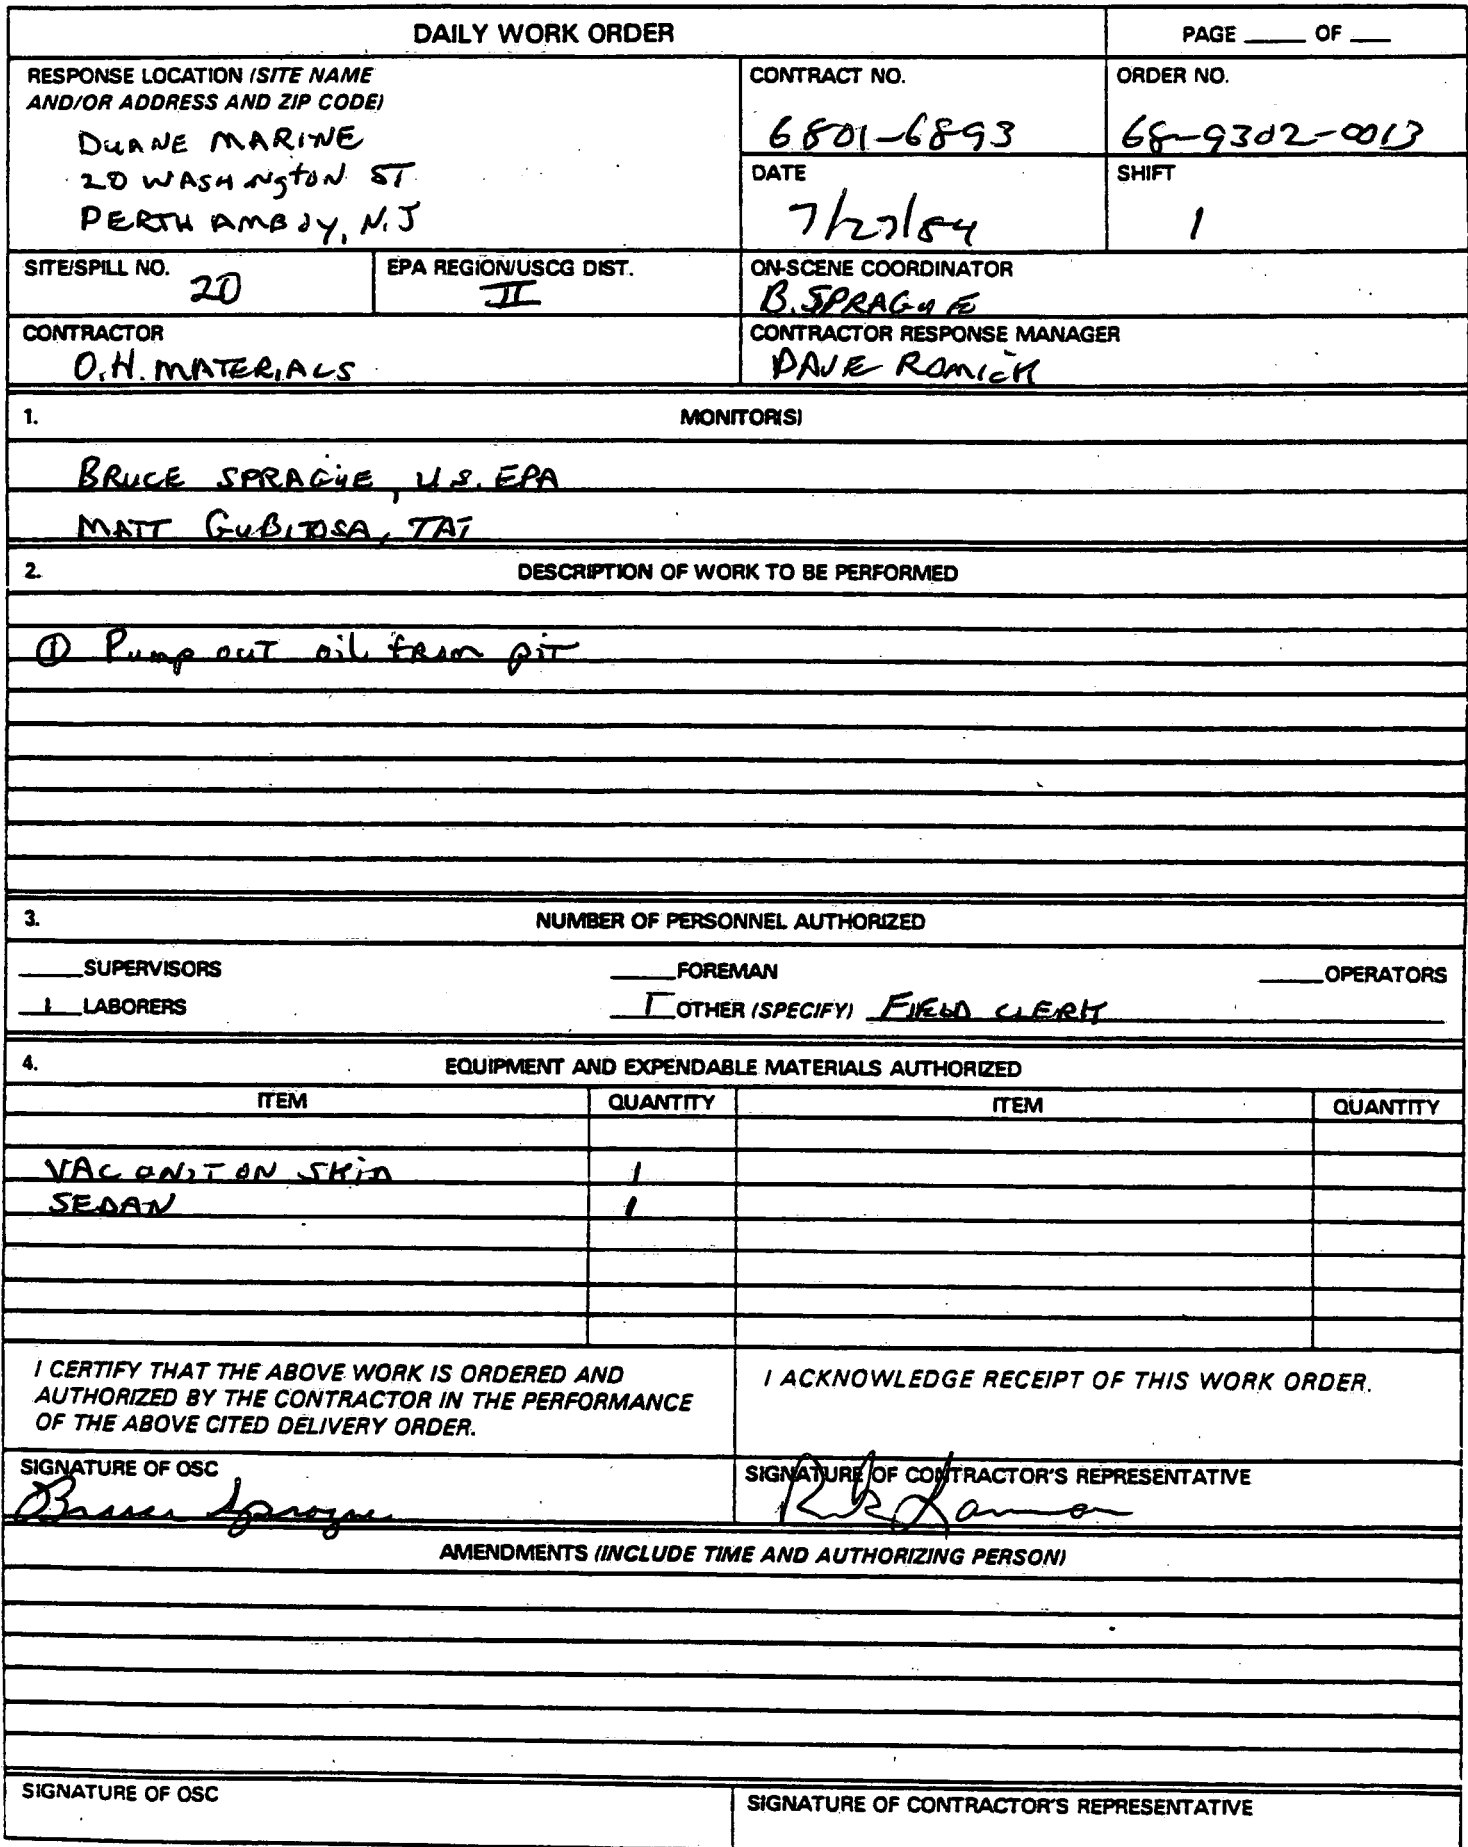 DAILY WORK ORDER
PAGE ____ OF ____
RESPONSE LOCATION (SITE NAME
AND/OR ADDRESS AND ZIP CODE)
DUANE MARINE
20 WASHINgtON ST
PERTH AMBOY, N.J
CONTRACT NO.
6801-6893
ORDER NO.
68-9302-0013
DATE
7/27/84
SHIFT
1
SITE/SPILL NO.
20
EPA REGION/USCG DIST.
II
ON-SCENE COORDINATOR
B. SPRAGUE
CONTRACTOR
O.H. MATERIALS
CONTRACTOR RESPONSE MANAGER
DAVE ROMICK
1. MONITOR(S)
BRUCE SPRAGUE, U.S. EPA
MATT GUBITOSA, TAT
2. DESCRIPTION OF WORK TO BE PERFORMED
① Pump out oil from pit
3. NUMBER OF PERSONNEL AUTHORIZED
____SUPERVISORS ____FOREMAN ____OPERATORS
1 LABORERS 1 OTHER (SPECIFY) FIELD CLERK
4. EQUIPMENT AND EXPENDABLE MATERIALS AUTHORIZED
ITEM QUANTITY ITEM QUANTITY
VAC UNIT ON SKID 1
SEDAN 1
I CERTIFY THAT THE ABOVE WORK IS ORDERED AND
AUTHORIZED BY THE CONTRACTOR IN THE PERFORMANCE
OF THE ABOVE CITED DELIVERY ORDER.
I ACKNOWLEDGE RECEIPT OF THIS WORK ORDER.
SIGNATURE OF OSC
Bruce Sprague
SIGNATURE OF CONTRACTOR'S REPRESENTATIVE
AMENDMENTS (INCLUDE TIME AND AUTHORIZING PERSON)
SIGNATURE OF OSC
SIGNATURE OF CONTRACTOR'S REPRESENTATIVE